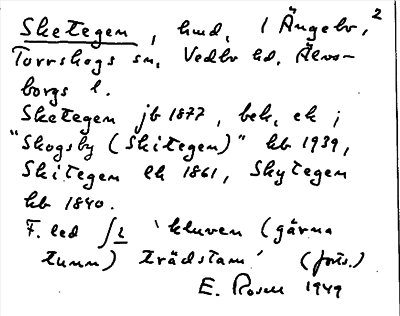 Sketegen, hmd, 1 Ängebo,²
Torrskogs sn, Vedbo hd, Älvs-
borgs l.
Sketegen jb 1877, bek, ek;
"Skogsby (Skitegen)" kb 1939,
Skitegen ek 1861, Skytegen
kb 1840.
F. led 'kluven (gärna
tunn) trädstam' (forts.)
E. Rosell 1949